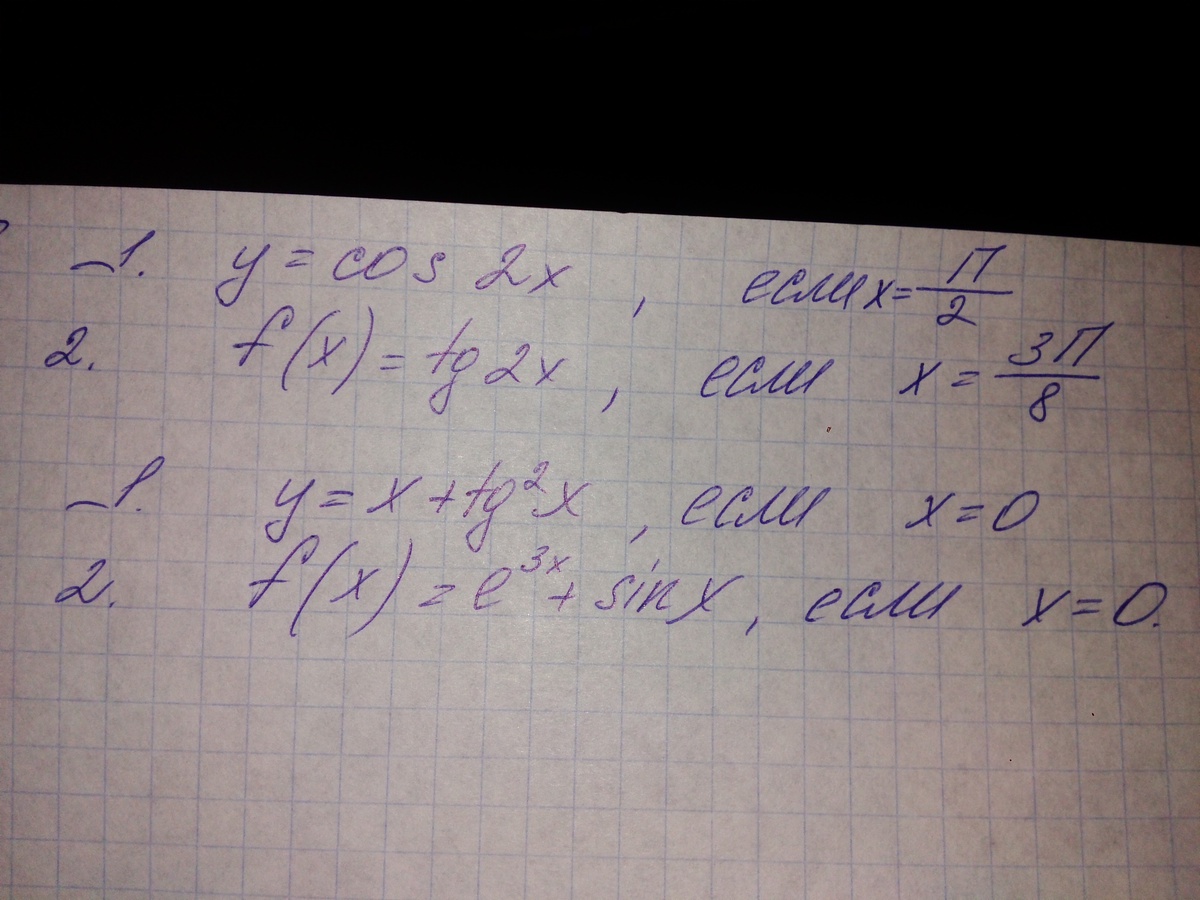 1. y = cos 2x , если x = П/2
2. f(x) = tg 2x , если x = 3П/8
1. y = x + tg²x , если x = 0
2. f(x) = e³ˣ + sin x , если x = 0.